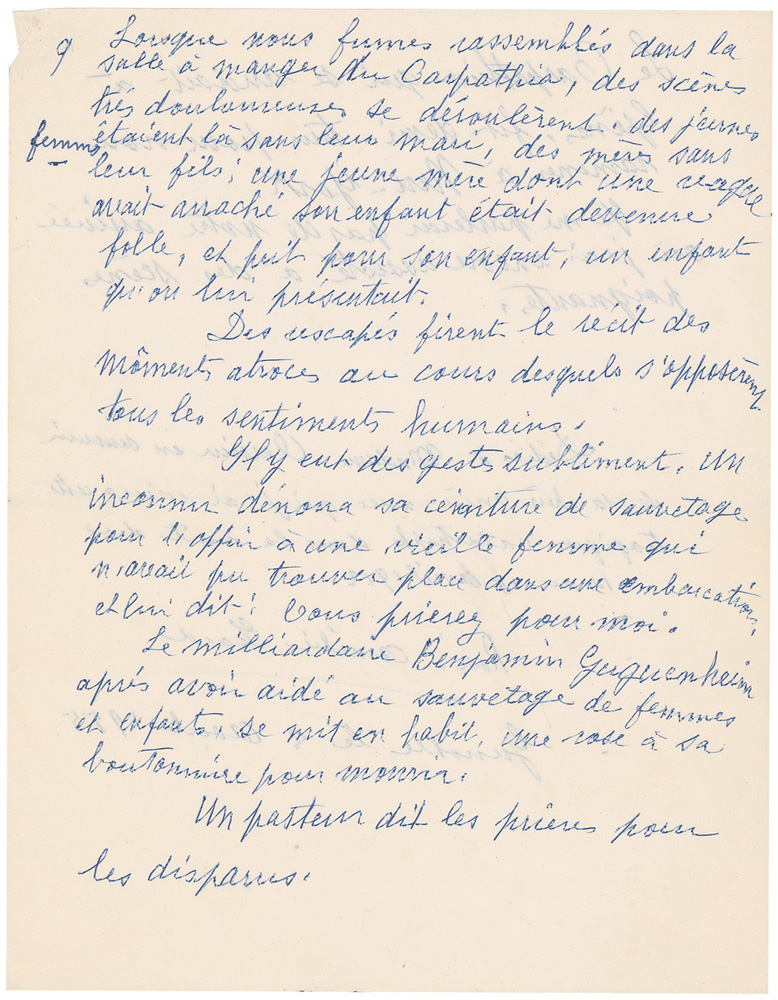 9 Lorsque nous fumes rassemblés dans la
salle à manger du Carpathia, des scènes
très douloureuses se déroulèrent. des jeunes
femmes étaient là sans leur mari, des mères sans
leur fils; une jeune mère dont une vague
avait arraché son enfant était devenue
folle, et prit pour son enfant, un enfant
qu'on lui présentait.
Des rescapés firent le récit des
môments atroces au cours desquels s'opposèrent
tous les sentiments humains.
Il y eut des gestes subliment. Un
inconnu dénoua sa ceinture de sauvetage
pour l'offrir à une vieille femme qui
n'avait pu trouver place dans une embarcation,
et lui dit: Vous prierez pour moi.
Le milliardaire Benjamin Guguenheim
après avoir aidé au sauvetage de femmes
et enfants, se mit en habit, une rose à sa
boutonnière pour mourir.
Un pasteur dit les prières pour
les disparus.